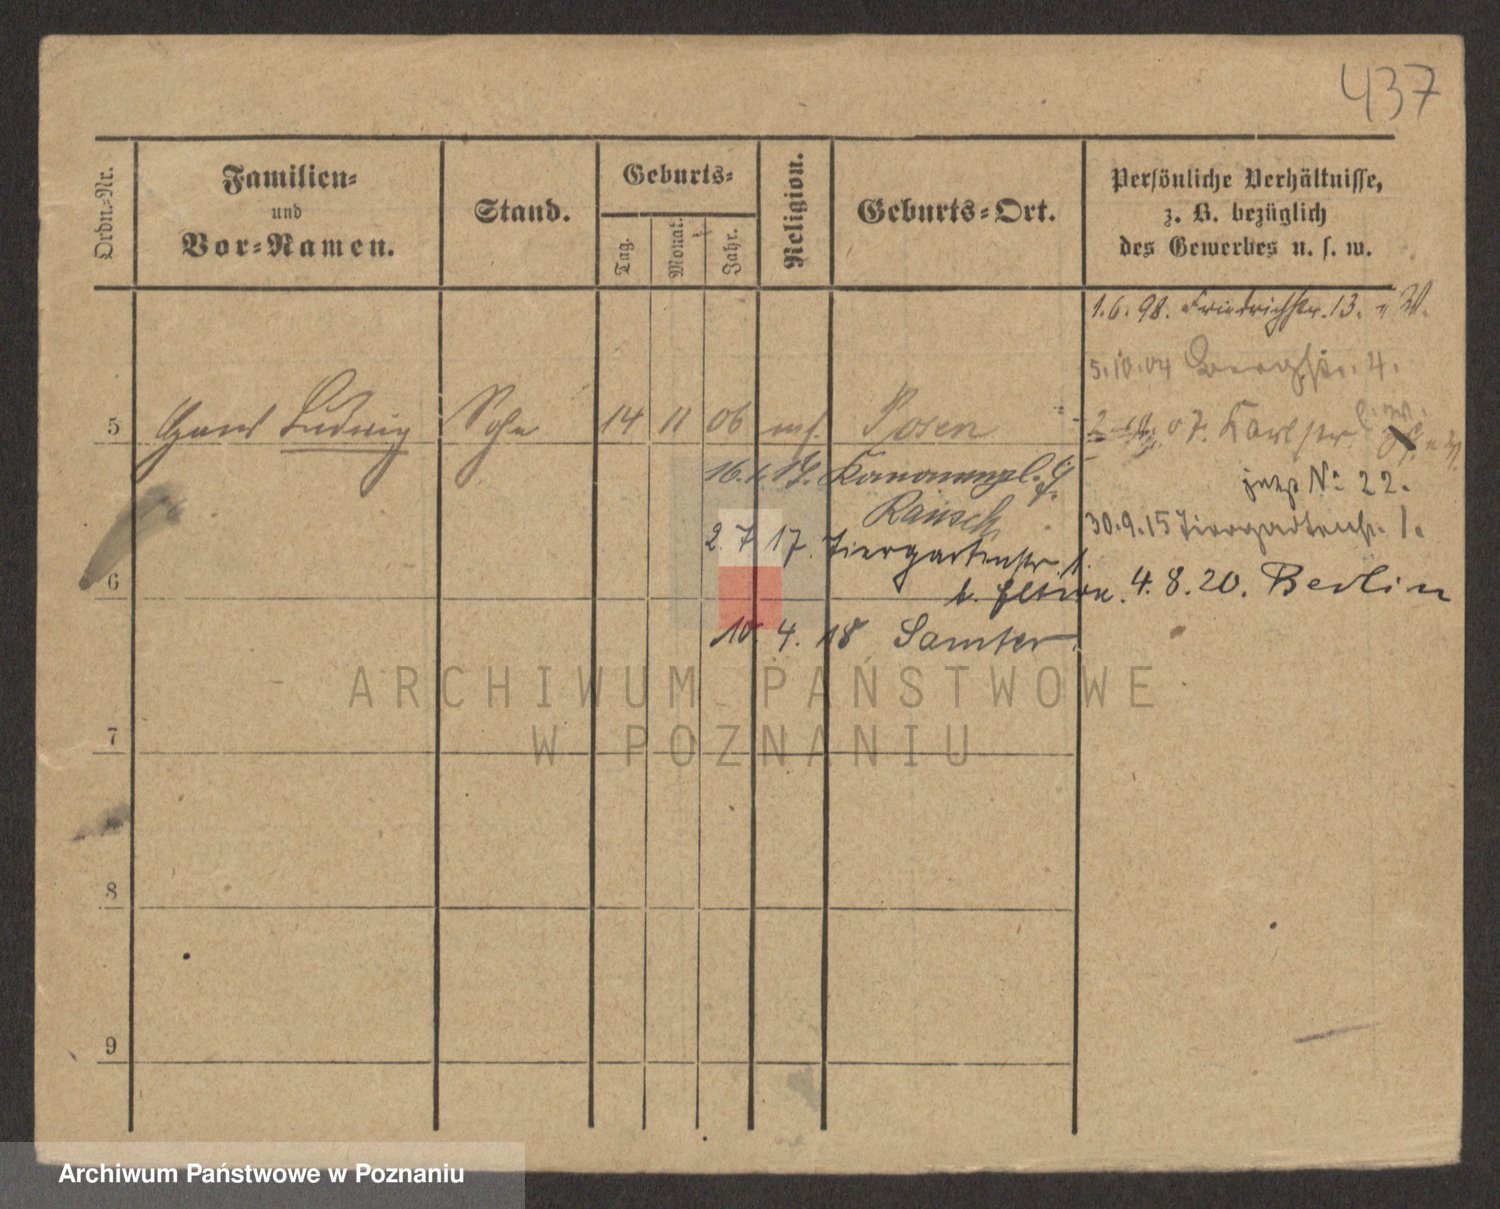 437
Ordn.-Nr.
Familien-
und
Vor-Namen.
Stand.
Geburts-
Tag.
Monat.
Jahr.
Religion.
Geburts-Ort.
Persönliche Verhältnisse,
z. B. bezüglich
des Gewerbes u. s. w.
1.6.98. Friedrichstr. 13.
5.10.04 Bergstr. 4.
5 Hans Ludwig Sohn 14 11 06 Posen
07. Karlstr.
Kanonenpl.
jetzt No 22.
Rausch
30.9.15 Tiergartenstr. 1.
2.7.17. Tiergartenstr. 1.
6
b. Eltern. 4.8.20. Berlin
10.4.18 Samter
ARCHIWUM PAŃSTWOWE
W POZNANIU
7
8
9
Archiwum Państwowe w Poznaniu